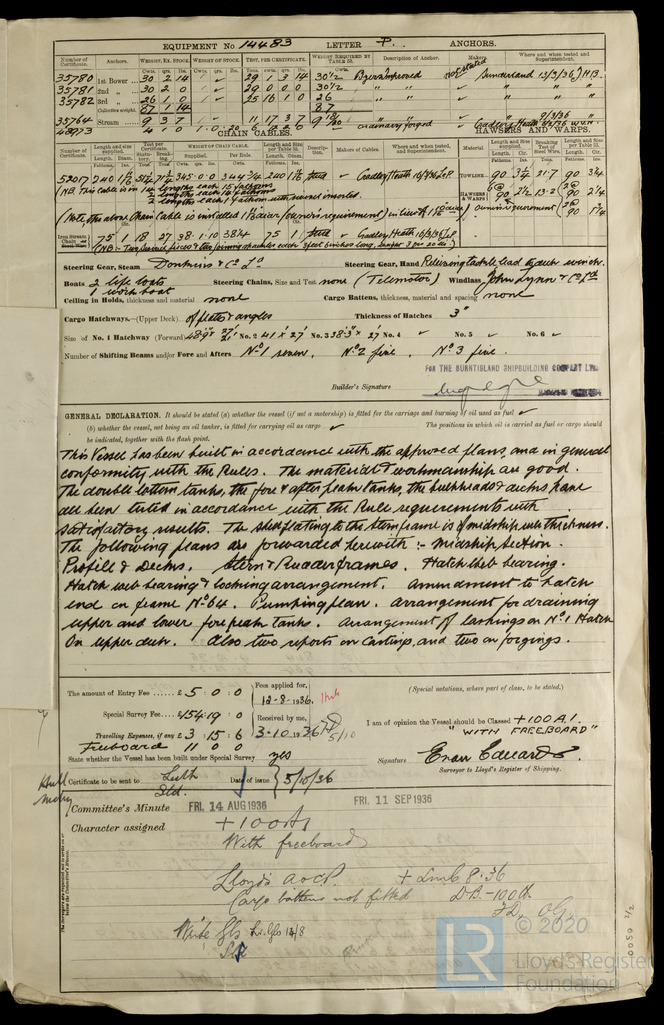 EQUIPMENT No 14483 LETTER P. ANCHORS.
Number of Certificate. Anchors. WEIGHT, EX. STOCK. WEIGHT OF STOCK. TEST, PER CERTIFICATE. WEIGHT REQUIRED BY TABLE 53. Description of Anchor. Makers. Where and when tested and Superintendent.
35780 1st Bower 30 2 14 29 1 3 14 30½ Byers Improved not stated Sunderland 13/3/36 H.B.
35781 2nd 30 2 0 29 0 0 0 30½ " " " "
35782 3rd 26 1 0 25 16 1 0 26 " " " "
Collective weight. 87 1 14 87
35764 Stream 9 3 7 11 17 3 7
48973 4 1 0 ordinary forged Cradley Heath
CHAIN CABLES. HAWSERS AND WARPS.
Number of Certificate. Length and size supplied. Test per Certificate. WEIGHT OF CHAIN CABLE. Length and size per Table 53. Description. Makers of Cables. Where and when tested, and Superintendent. Material. Length and size supplied. Breaking Test of Steel Wire. Length and size per Table 53.
Supplied. Per Rule.
240 stud Cradley Heath TOWLINE 90 3¾ 21.7 90 3¾
(NB. This cable is in 14 lengths each 15 fathoms
2 lengths each 4 fathoms with swivel inserted.
HAWSERS & WARPS 90 2½ 13.2 90 2¼
(Note the above chain cable is installed (owner's requirement) in lieu of owner's requirement 90 1¾
Iron Stream Chain 75 1 18 27 38.1.10 38¼ 75 1 stud Cradley Heath
Steering Gear, Steam Donkins & Co Ld Steering Gear, Hand Relieving tackle lead to deck winch.
Boats 2 life boats Steering Chains, Size and Test none (Telemotor) Windlass John Lynn & Co Ld
1 work boat
Ceiling in Holds, thickness and material none Cargo Battens, thickness, material and spacing none
Cargo Hatchways.—(Upper Deck). of plates & angles Thickness of Hatches 3"
Size of No. 1 Hatchway (Forward) 48'9" x 27' No. 2 41' x 27' No. 3 38'3" x 27' No. 4 No. 5 No. 6
Number of Shifting Beams and/or Fore and Afters No 1 seven. No 2 five. No 3 five.
FOR THE BURNTISLAND SHIPBUILDING COMPANY LTD.
Builder's Signature
GENERAL DECLARATION. It should be stated (a) whether the vessel (if not a motorship) is fitted for the carriage and burning of oil used as fuel
(b) whether the vessel, not being an oil tanker, is fitted for carrying oil as cargo The positions in which oil is carried as fuel or cargo should
be indicated, together with the flash point.
This Vessel has been built in accordance with the approved plans, and in general
conformity with the Rules. The material & workmanship are good.
The double bottom tanks, the fore & after peak tanks, the bulkheads & decks, have
all been tested in accordance with the Rule requirements with
satisfactory results. The shell plating to the stern frame is of midship thickness.
The following plans are forwarded herewith :- Midship Section.
Profile & Decks. Stern & Rudder frames. Hatch web bearing.
Hatch web bearing & locking arrangement. Amendment to hatch
end on frame No 64. Pumping plan. Arrangement for draining
upper and lower fore peak tanks. Arrangement of lashings on No 1 Hatch
On upper deck. Also two reports on Castings, and two on forgings.
The amount of Entry Fee £ 5 : 0 : 0 Fees applied for, (Special notations, where part of class, to be stated.)
12-8-1936.
Special Survey Fee £154 : 19 : 0 Received by me, I am of opinion the Vessel should be Classed +100A1.
Travelling Expenses, if any £ 3 : 15 : 6 3-10-1936 5/10 "WITH FREEBOARD"
Freeboard 11 0 0
State whether the Vessel has been built under Special Survey yes Signature Evan Edwards.
Surveyor to Lloyd's Register of Shipping.
Certificate to be sent to Leith Date of issue 5/10/36
Committee's Minute FRI. 14 AUG 1936 FRI. 11 SEP 1936
Character assigned +100A1
With freeboard
Lloyd's A & CP. + LMC 8.36
Cargo battens not fitted DB-100
FD. OG.
Write Gls
0050 2/2
LR © 2020
Lloyd's Register
Foundation